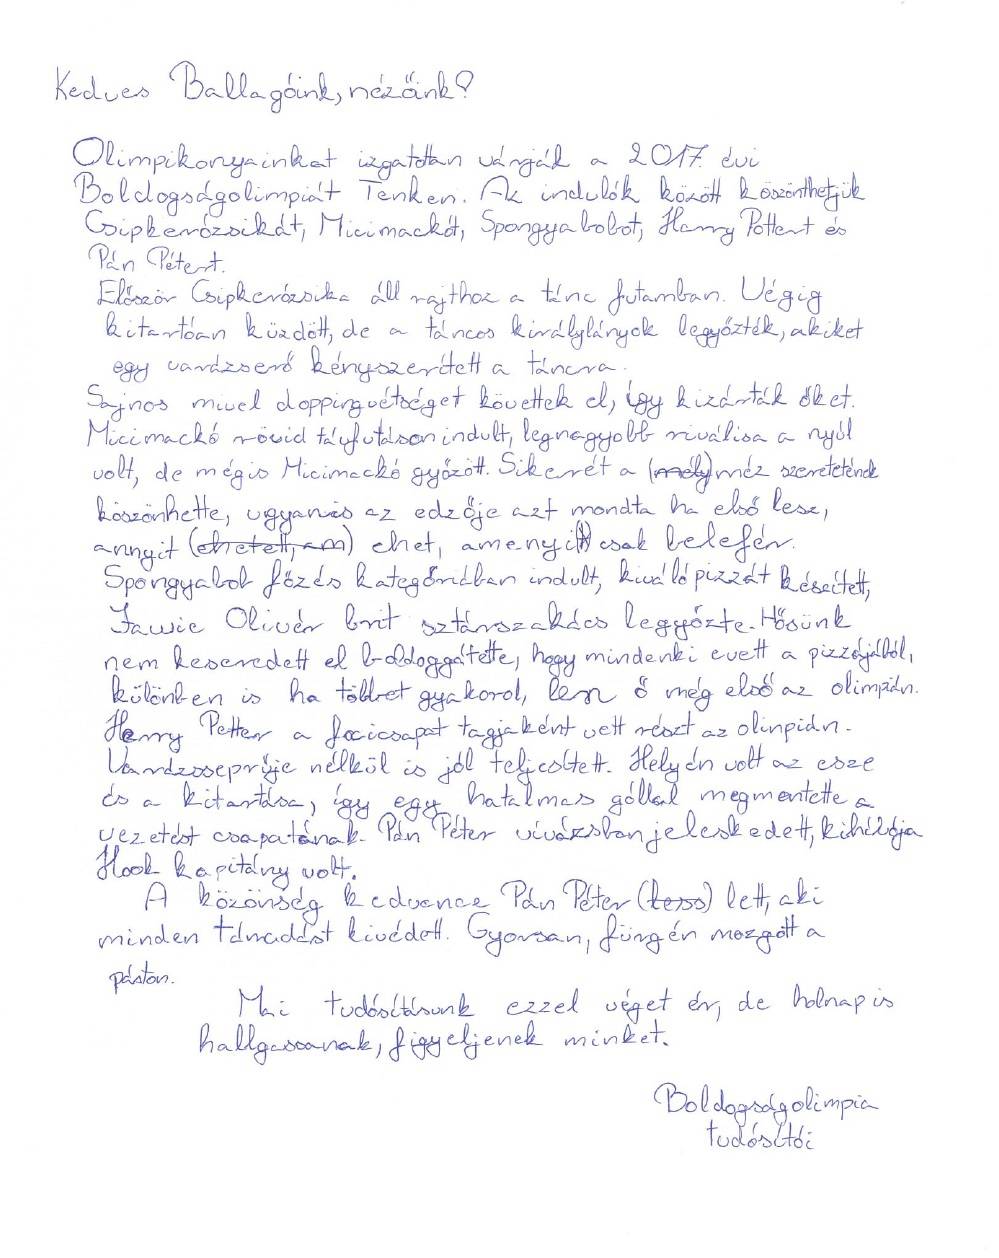 Kedves Ballagóink, nézőink?
Olimpikonyainkat izgatottan várják a 2017. évi
Boldogságolimpiát Tenken. Az indulók között köszönthetjük
Csipkerózsikát, Micimackót, Spongyabobot, Harry Pottert és
Pán Pétert.
Először Csipkerózsika áll rajthoz a tánc futamban. Végig
kitartóan küzdött, de a táncos királylányok legyőzték, akiket
egy varázserő kényszerített a táncra.
Sajnos mivel doppingvétséget követtek el, így kizárták őket.
Micimackó rövid távfutáson indult, legnagyobb riválisa a nyúl
volt, de mégis Micimackó győzött. Sikerét a (mély) méz szeretetének
köszönhette, ugyanis az edzője azt mondta ha első lesz,
annyit (ehetett, am) ehet, amenyi(t) csak belefér.
Spongyabob főzés kategóriában indult, kiváló pizzát készített,
Jawie Olivér brit sztárszakács legyőzte. Hősünk
nem keseredett el boldoggátette, hogy mindenki evett a pizzájából,
különben is ha többet gyakorol, lesz ő még első az olimpián.
Harry Petter a focicsapat tagjaként vett részt az olinpián.
Varázsseprűje nélkül is jól teljesített. Helyén volt az esze
és a kitartása, így egy hatalmas góllal megmentette a
vezetést csapatának. Pán Péter vívásban jeleskedett, kihívója
Hook kapitány volt.
A közönség kedvence Pán Péter (less) lett, aki
minden támadást kivédett. Gyorsan, fürgén mozgott a
páston.
Mai tudósításunk ezzel véget ér, de holnap is
hallgassanak, figyeljenek minket.
Boldogságolimpia
tudósítói